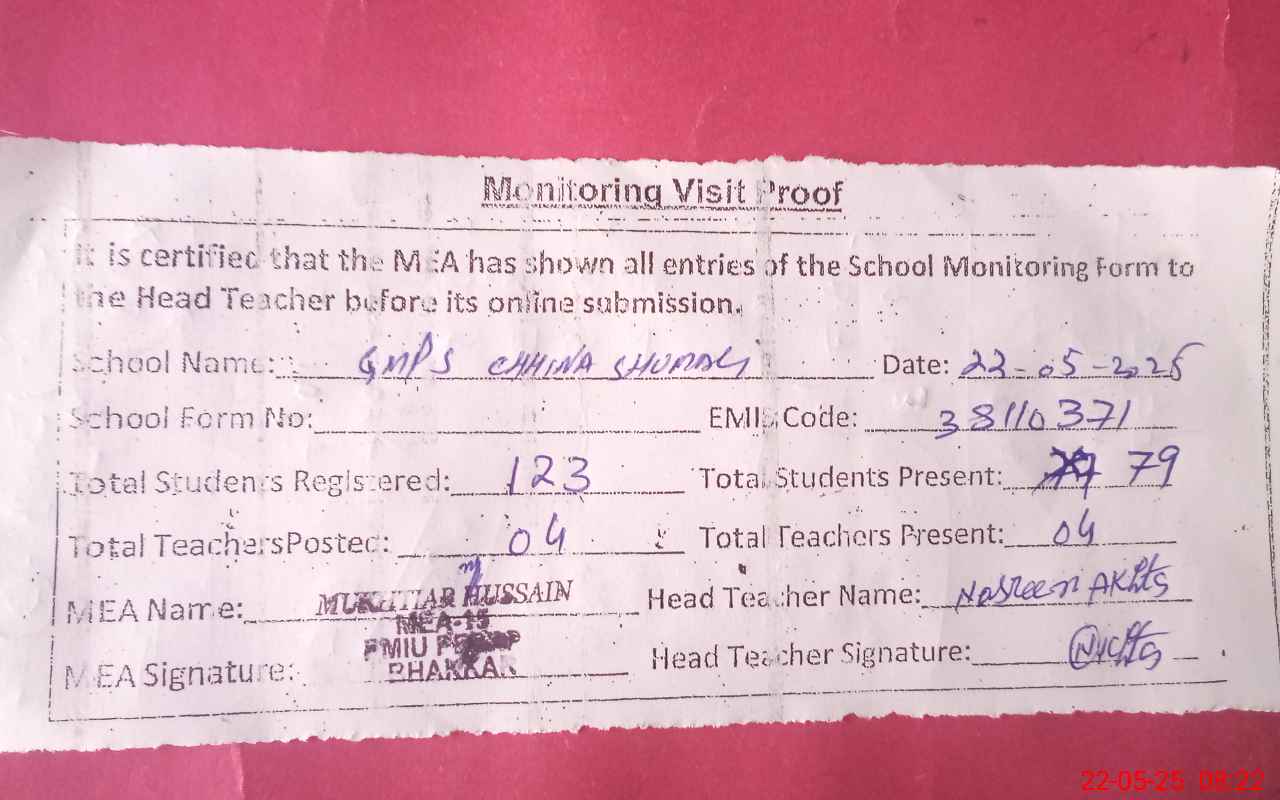 Monitoring Visit Proof
It is certified that the MEA has shown all entries of the School Monitoring Form to
the Head Teacher before its online submission.
School Name: GMPS CHHINA SHUMALI Date: 22-05-2025
School Form No: EMIS Code: 38110371
Total Students Registered: 123 Total Students Present: 79
Total Teachers Posted: 04 Total Teachers Present: 04
MEA Name: MUKHTIAR HUSSAIN Head Teacher Name: Nasreen Akhtar
MEA-15
PMIU
BHAKKAR
MEA Signature: Head Teacher Signature:
22-05-25 08:22